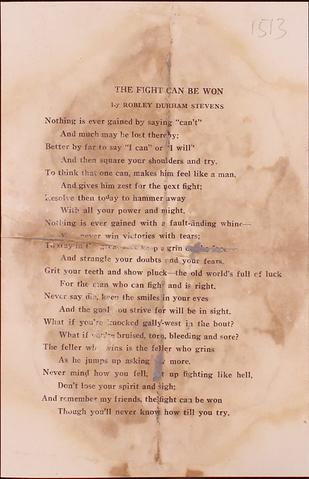 1513
THE FIGHT CAN BE WON
by ROBLEY DURHAM STEVENS
Nothing is ever gained by saying "can't"
And much may be lost thereby;
Better by far to say "I can" or "I will"
And then square your shoulders and try.
To think that one can, makes him feel like a man,
And gives him zest for the next fight;
Resolve then today to hammer away
With all your power and might.
Nothing is ever gained with a fault-finding whine—
never win victories with tears;
To stay in a grin
And strangle your doubts and your fears.
Grit your teeth and show pluck—the old world's full of luck
For the man who can fight and is right.
Never say die, keep the smiles in your eyes
And the goal you strive for will be in sight.
What if you're knocked gally-west in the bout?
What if bruised, torn, bleeding and sore?
The feller who wins is the feller who grins
As he jumps up asking more.
Never mind how you fell, up fighting like hell,
Don't lose your spirit and sigh;
And remember my friends, the fight can be won
Though you'll never know how till you try.